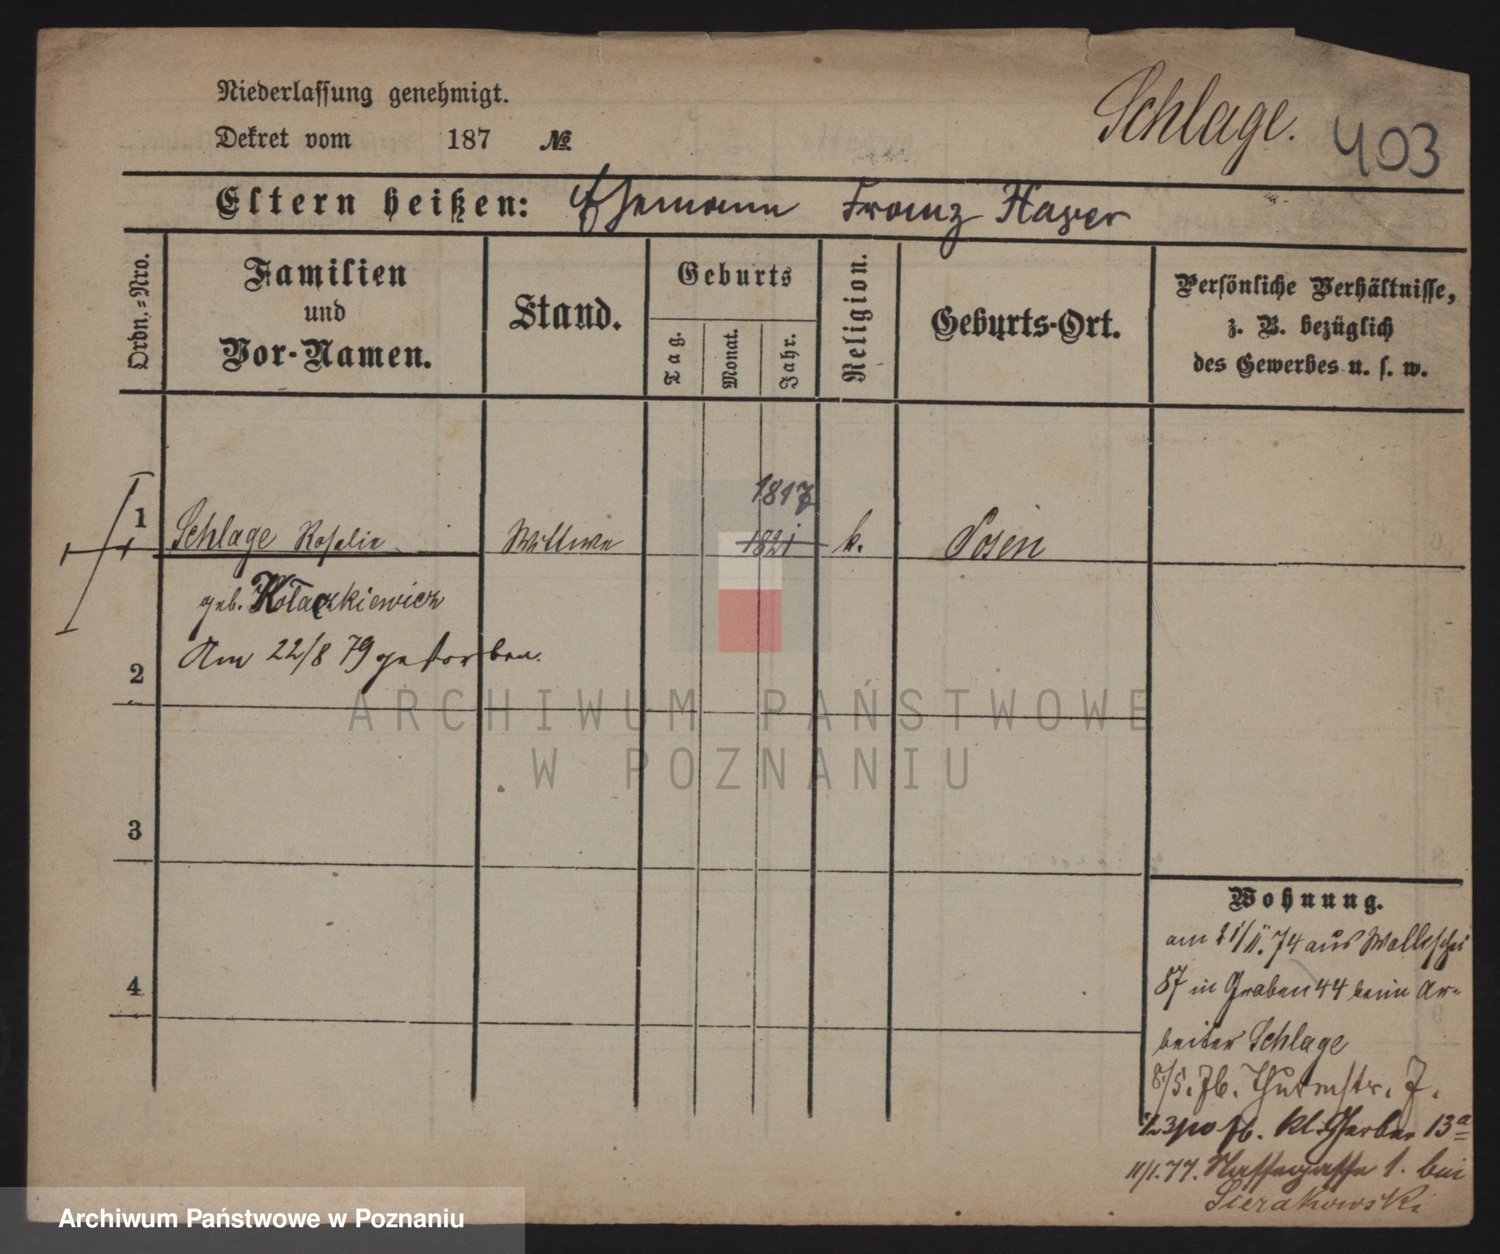 Niederlassung genehmigt.
Dekret vom 187 №
Schlage. 403
Eltern heißen: Ehemann Franz Xaver
Ordn.-Nro.
Familien
und
Vor-Namen.
Stand.
Geburts
Tag.
Monat.
Jahr.
Religion.
Geburts-Ort.
Persönliche Verhältnisse,
z. B. bezüglich
des Gewerbes u. s. w.
1817
1 Schlage Rosalie Wittwe 1821 k. Posen
geb. Kołaczkiewicz
Am 22/8 79 gestorben.
2
ARCHIWUM PAŃSTWOWE
W POZNANIU
3
4
Wohnung.
am 21/11. 74 aus Wallischei
87 in Graben 44 beim Ar-
beiter Schlage
8/5. 76. Thurmstr. 7.
kl. Gerber 13a
11/1. 77. Nassegasse 1. bei
Sierakowski
Archiwum Państwowe w Poznaniu